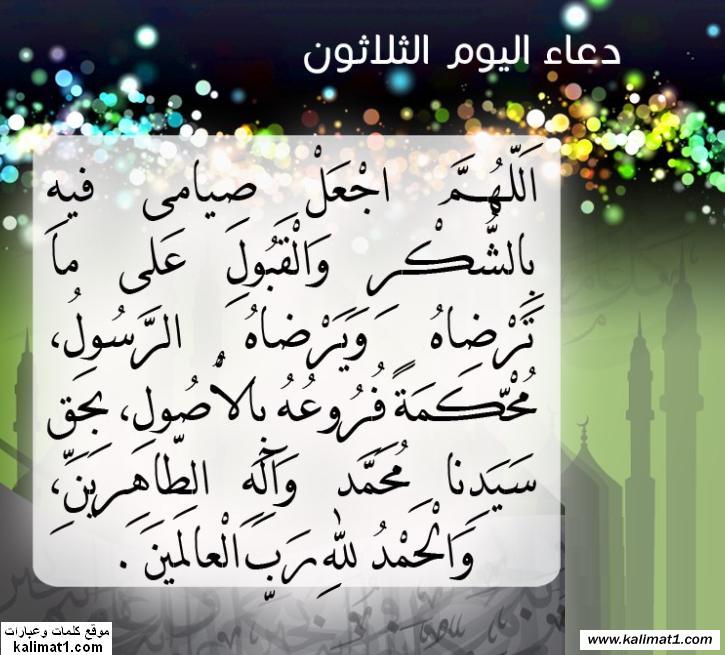 دعاء اليوم الثلاثون
اَللّهُمَّ اجْعَلْ صِيامى فيهِ
بِالشُّكْرِ وَالْقَبُولِ عَلى ما
تَرْضاهُ وَيَرْضاهُ الرَّسُولُ،
مُحْكَمَةً فُرُوعُهُ بِالأُصُولِ، بِحَقِّ
سَيِّدِنا مُحَمَّد وَآلِهِ الطّاهِرينَ،
وَالْحَمْدُ للهِ رَبِّ الْعالَمينَ .
موقع كلمات وعبارات
kalimat1.com
www.kalimat1.com